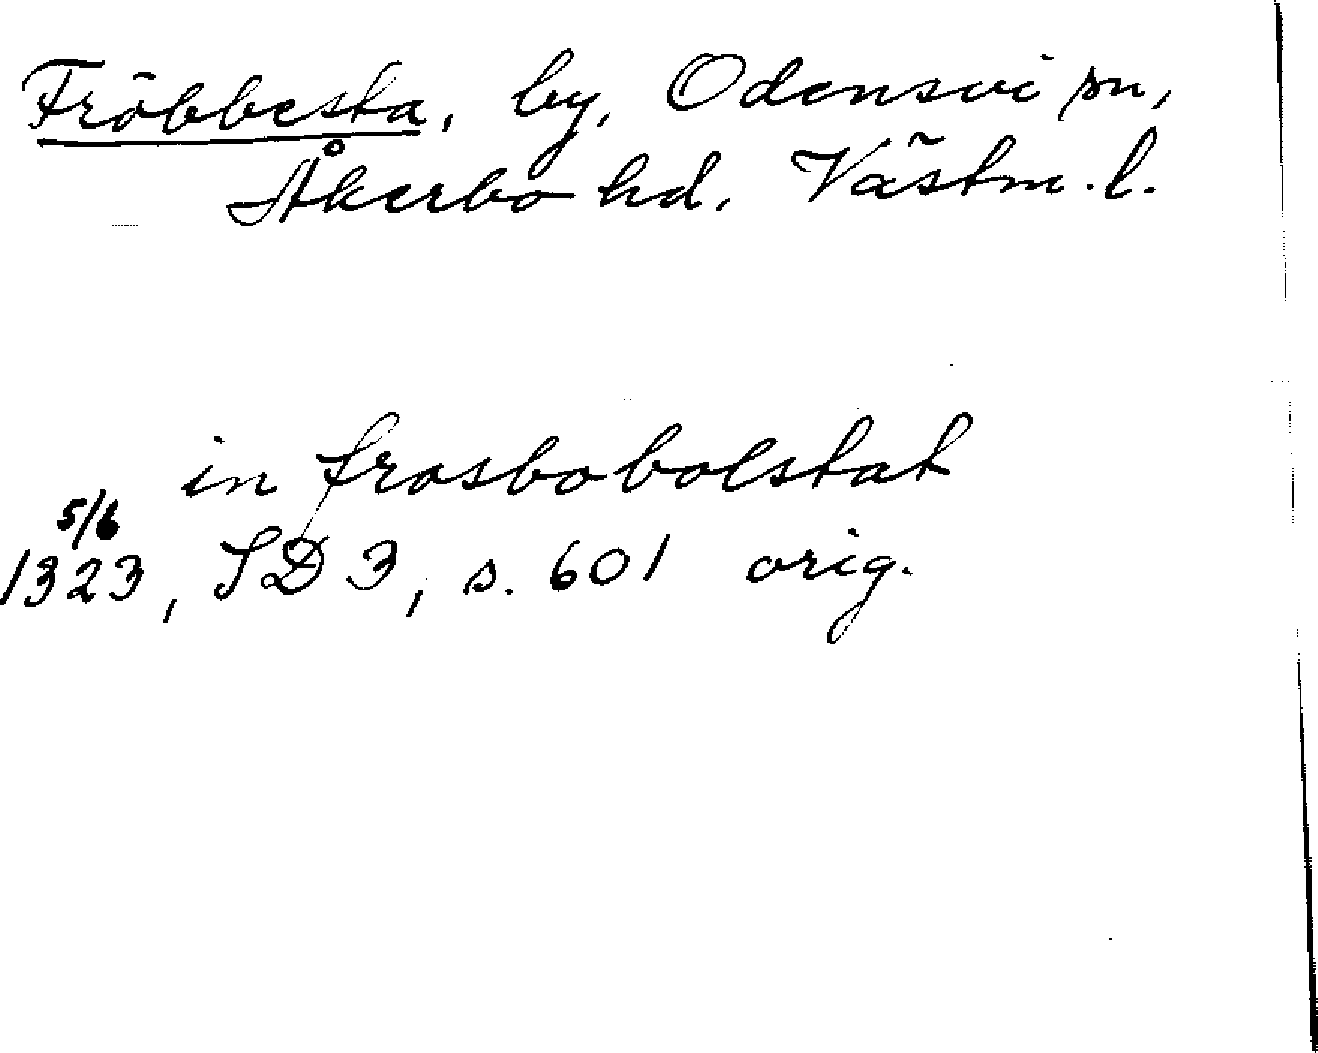 Fröbbesta, by, Odensvi sn,
Åkerbo hd. Västm. l.
in frosbobolstat
5/6
1323, SD 3, s. 601 orig.